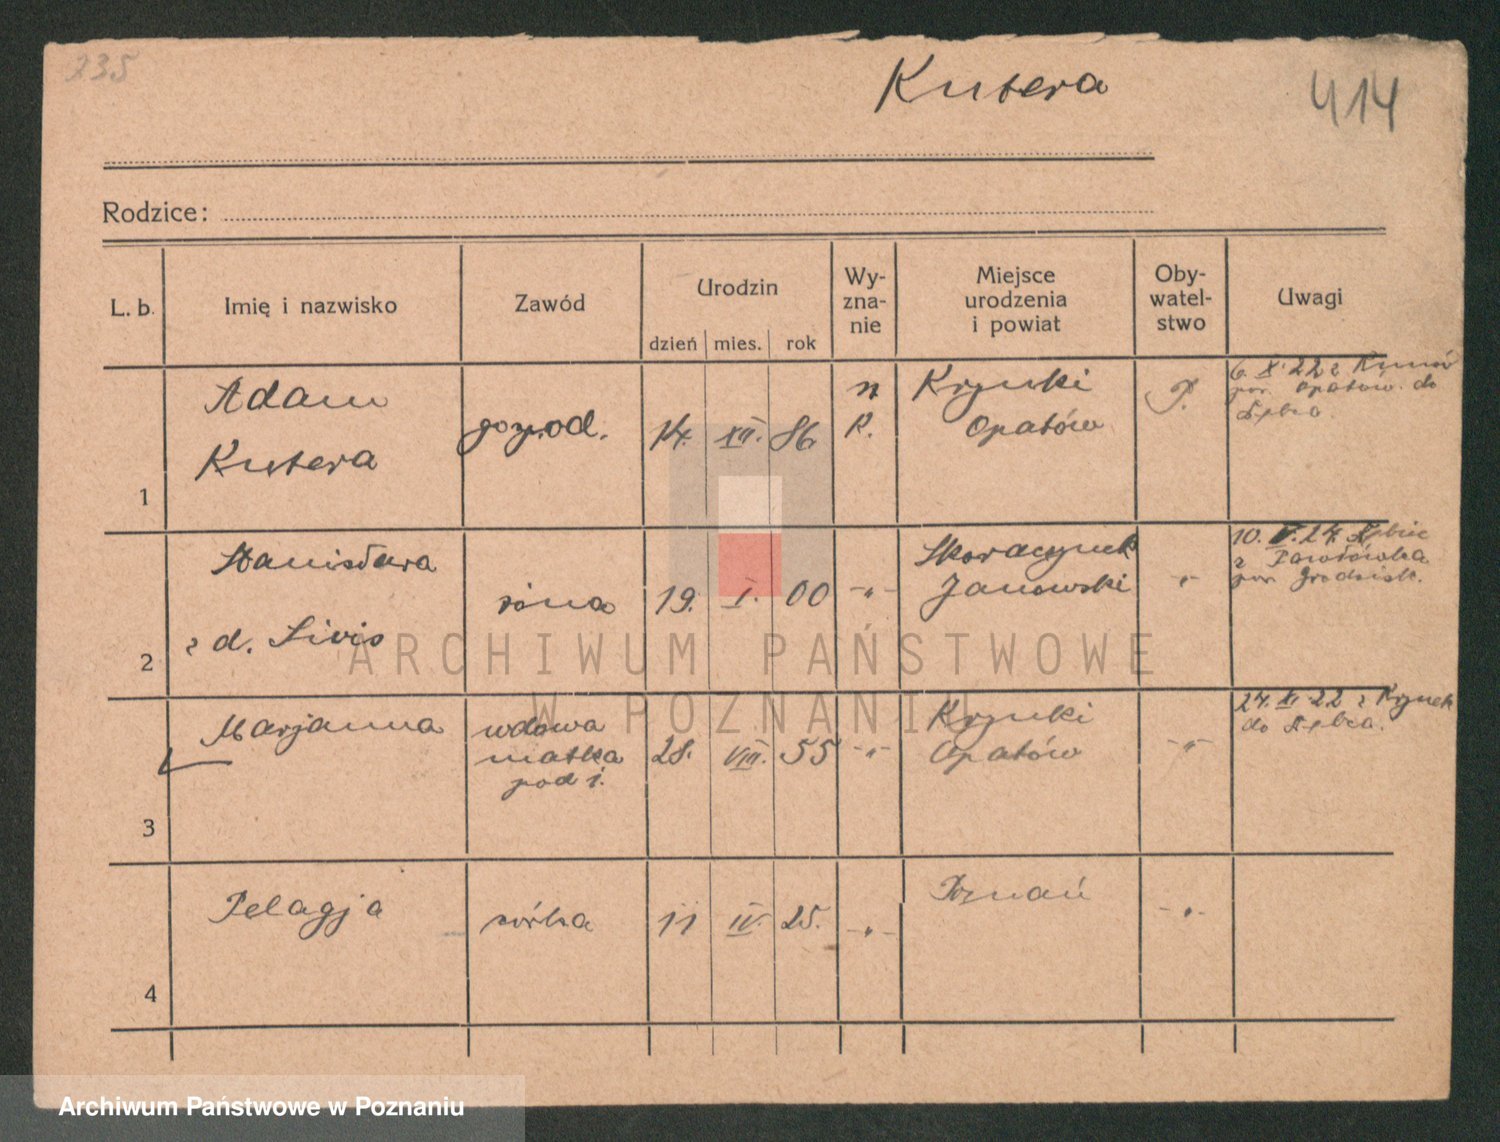 235
Kutera
414
Rodzice:
L. b.
Imię i nazwisko
Zawód
Urodzin
dzień mies. rok
Wy-
zna-
nie
Miejsce
urodzenia
i powiat
Oby-
watel-
stwo
Uwagi
1
Adam
Kutera
gospod.
14. XII. 86
R.
Krynki
Opatów
P.
6. X. 22 z
pow. Opatów. do
2
Stanisława
z d.
żona
19. I. 00
-"-
Janowski
-"-
10. V. 24.
z
pow. Grodzisk.
3
Marjanna
wdowa
matka
pod 1.
28. VIII. 55
-"-
Krynki
Opatów
-"-
24. XI. 22 z Krynek
do
4
Pelagja
córka
11 IV. 25.
-"-
Poznań
-"-
ARCHIWUM PAŃSTWOWE
W POZNANIU
Archiwum Państwowe w Poznaniu